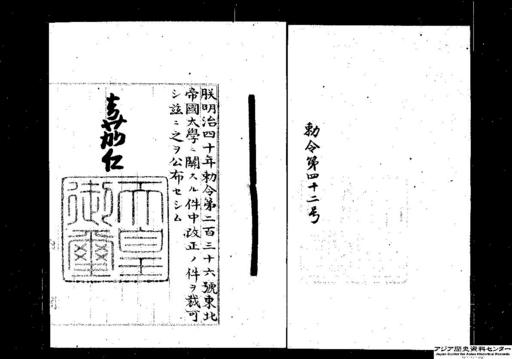 勅令第四十二号
朕明治四十年勅令第二百三十六號東北
帝國大學ニ關スル件中改正ノ件ヲ裁可
シ茲ニ之ヲ公布セシム
嘉仁
天皇
御璽
アジア歴史資料センター
Japan Center for Asian Historical Records